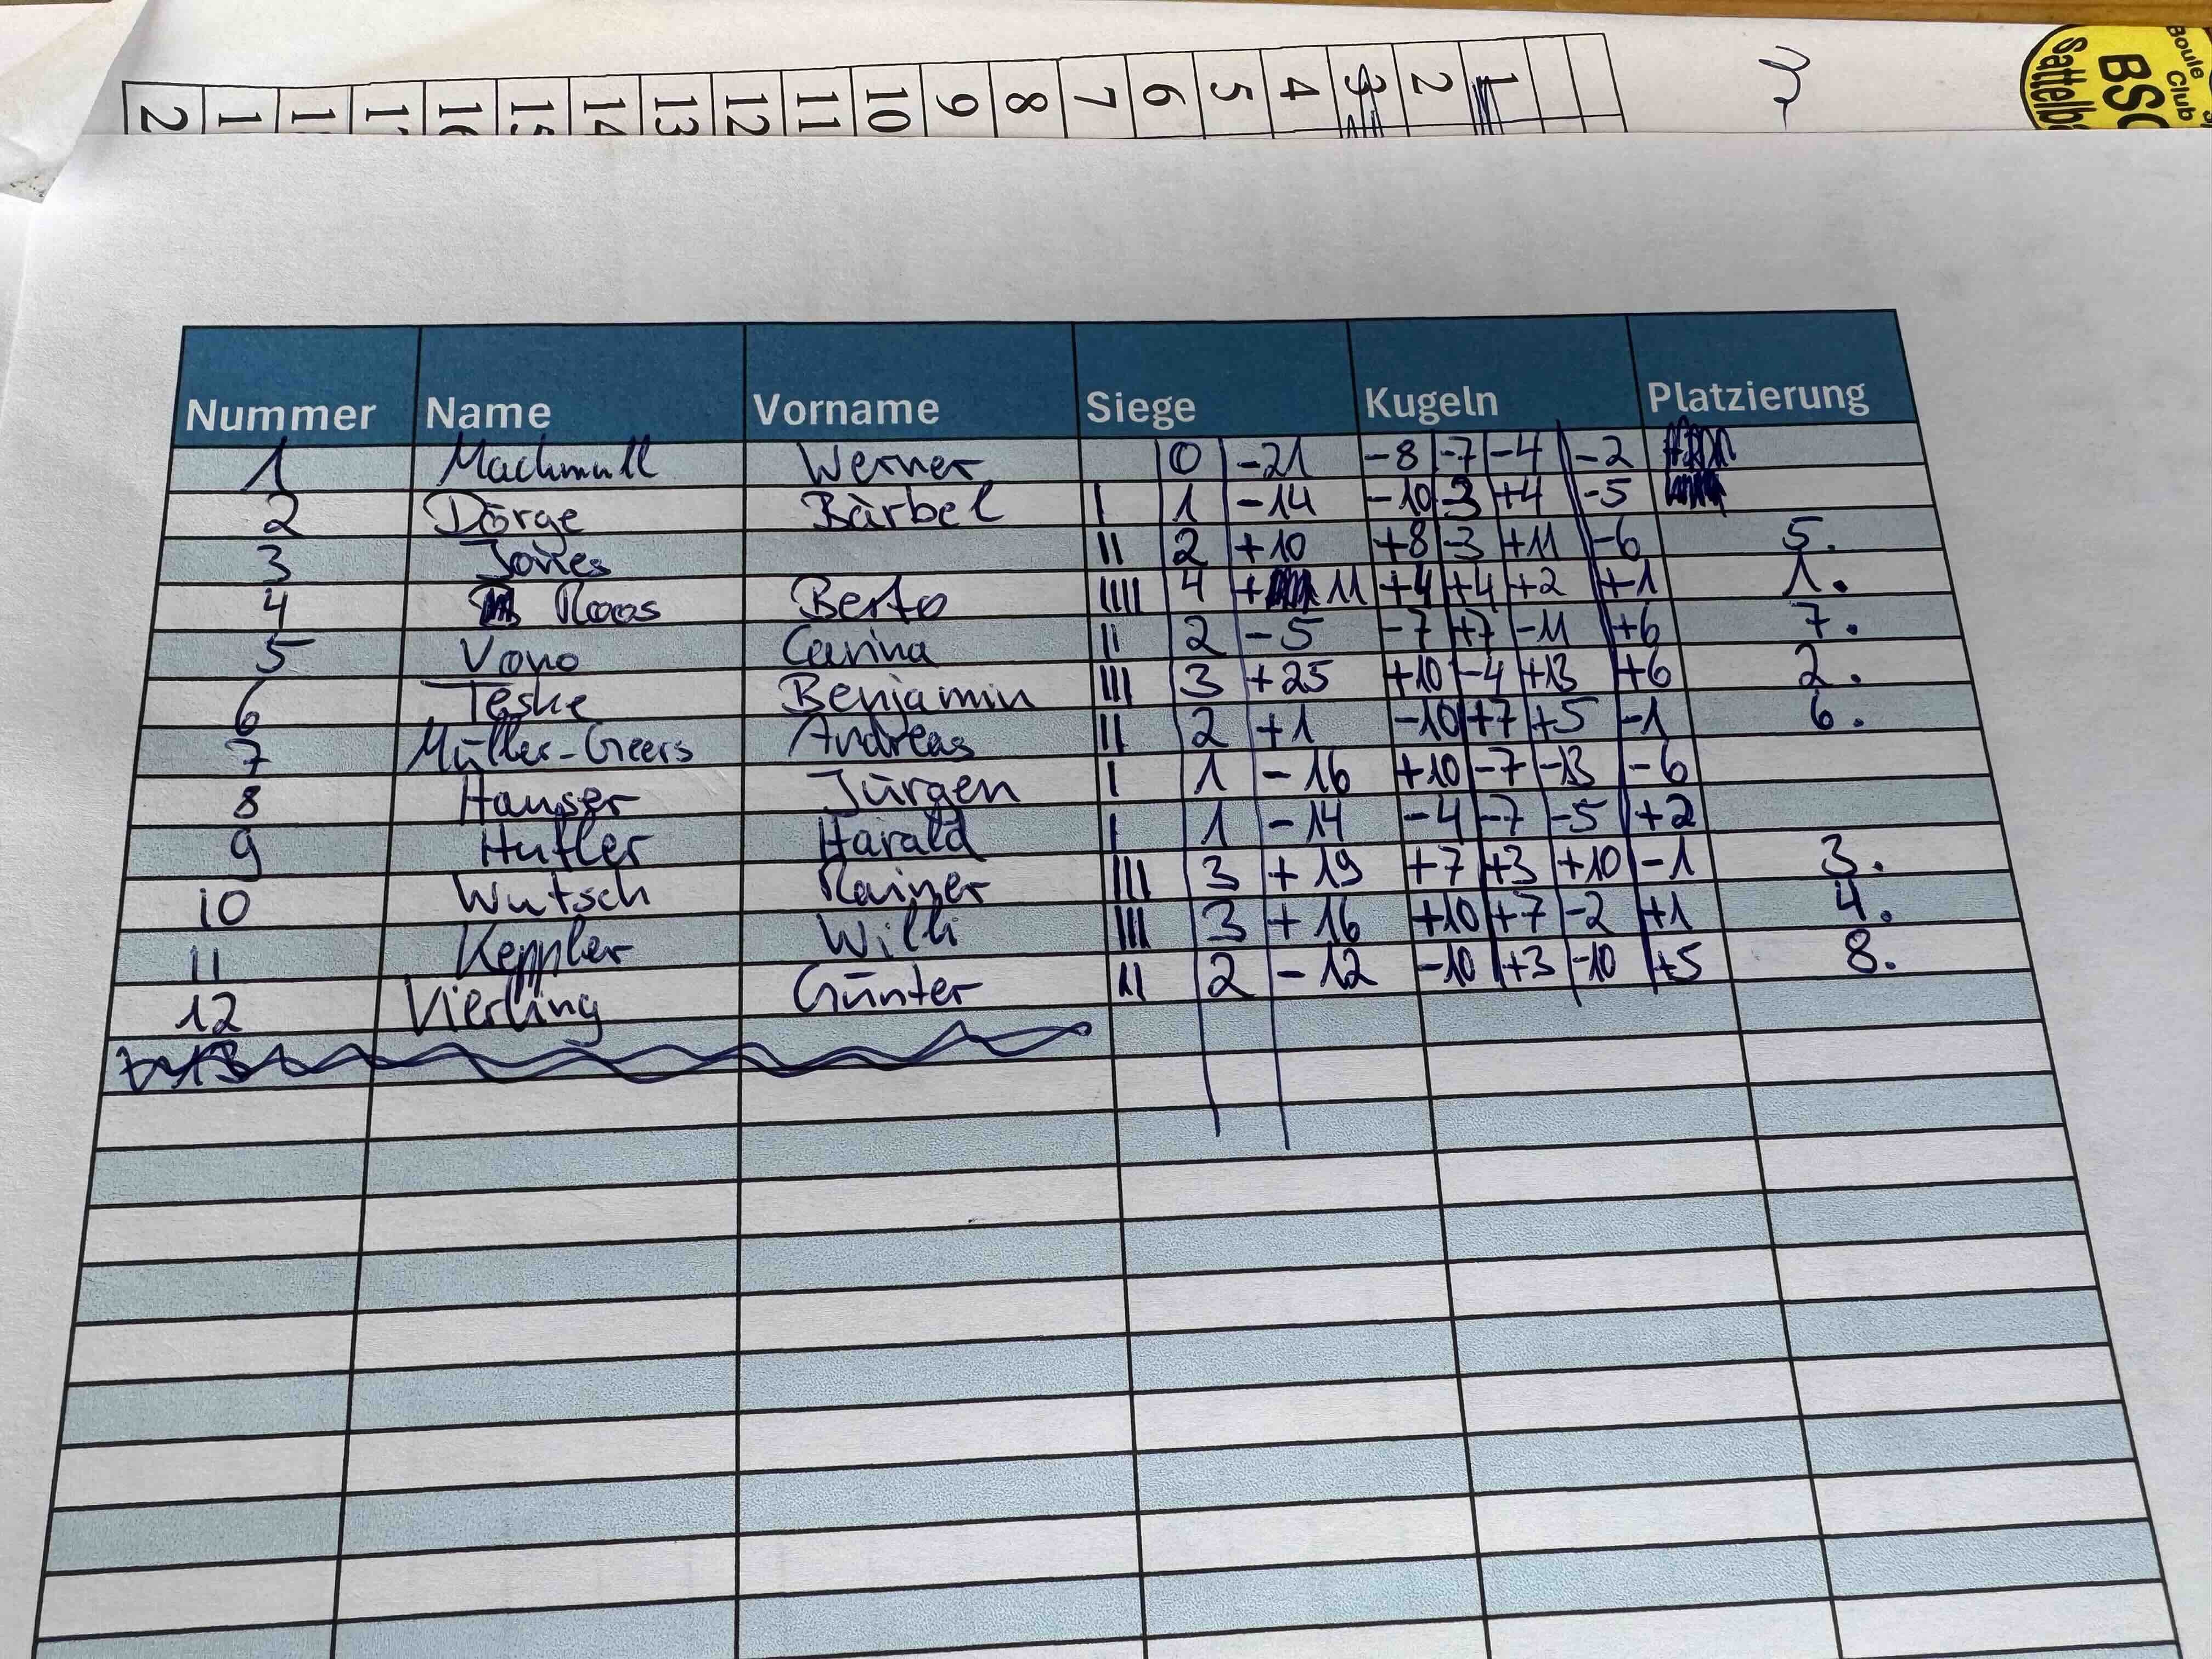 2 1 1 1 16 15 14 13 12 11 10 9 8 7 6 5 4 3 2 1
Boule
Club
BSC
Nummer Name Vorname Siege Kugeln Platzierung
1 Machmüll Werner 0 -21 -8 -7 -4 -2
2 Dörge Bärbel I 1 -14 -10 -3 +4 -5
3 Jones II 2 +10 +8 -3 +11 -6 5.
4 Roos Berto IIII 4 + 11 +4 +4 +2 +1 1.
5 Vono Carina II 2 -5 -7 +7 -11 +6 7.
6 Teske Benjamin III 3 +25 +10 -4 +13 +6 2.
7 Müller-Geers Andreas II 2 +1 -10 +7 +5 -1 6.
8 Hauser Jürgen I 1 -16 +10 -7 -13 -6
9 Hutler Harald I 1 -14 -4 -7 -5 +2
10 Wutsch Rainer III 3 +19 +7 +3 +10 -1 3.
11 Keppler Willi III 3 +16 +10 +7 -2 +1 4.
12 Vierling Günter II 2 -12 -10 +3 -10 +5 8.